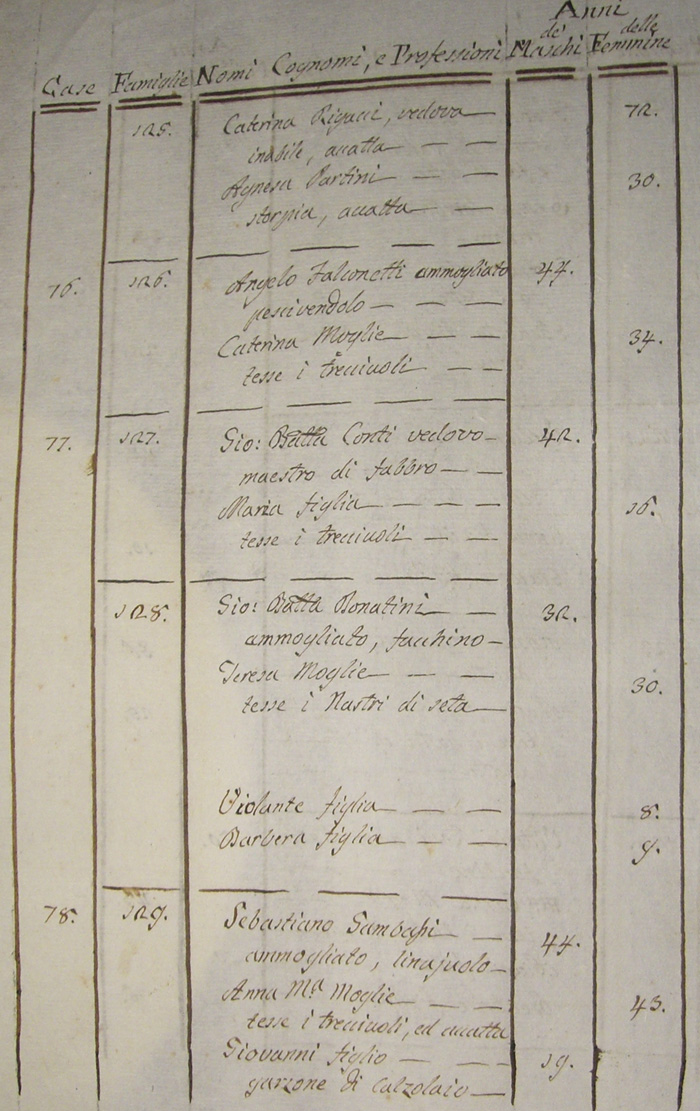 Anni
Case Famiglie Nomi Cognomi, e Professioni de' Maschi delle Femmine
125. Caterina Rigacci, vedova 72.
inabile, accatta
Agnesa Partini 30.
storpia, accatta
76. 126. Angelo Falconetti ammogliato 44.
pescivendolo
Caterina Moglie 34.
tesse i trecciuoli
77. 127. Gio: Batta Conti vedovo 42.
maestro di fabbro
Maria figlia 16.
tesse i trecciuoli
128. Gio: Batta Donatini 32.
ammogliato, facchino
Teresa Moglie 30.
tesse i Nastri di seta
Violante figlia 8.
Barbera figlia 9.
78. 129. Sebastiano Gambassi 44.
ammogliato, linajuolo
Anna Mª Moglie 43.
tesse i trecciuoli, ed accatta
Giovanni figlio 19.
garzone di Calzolaio